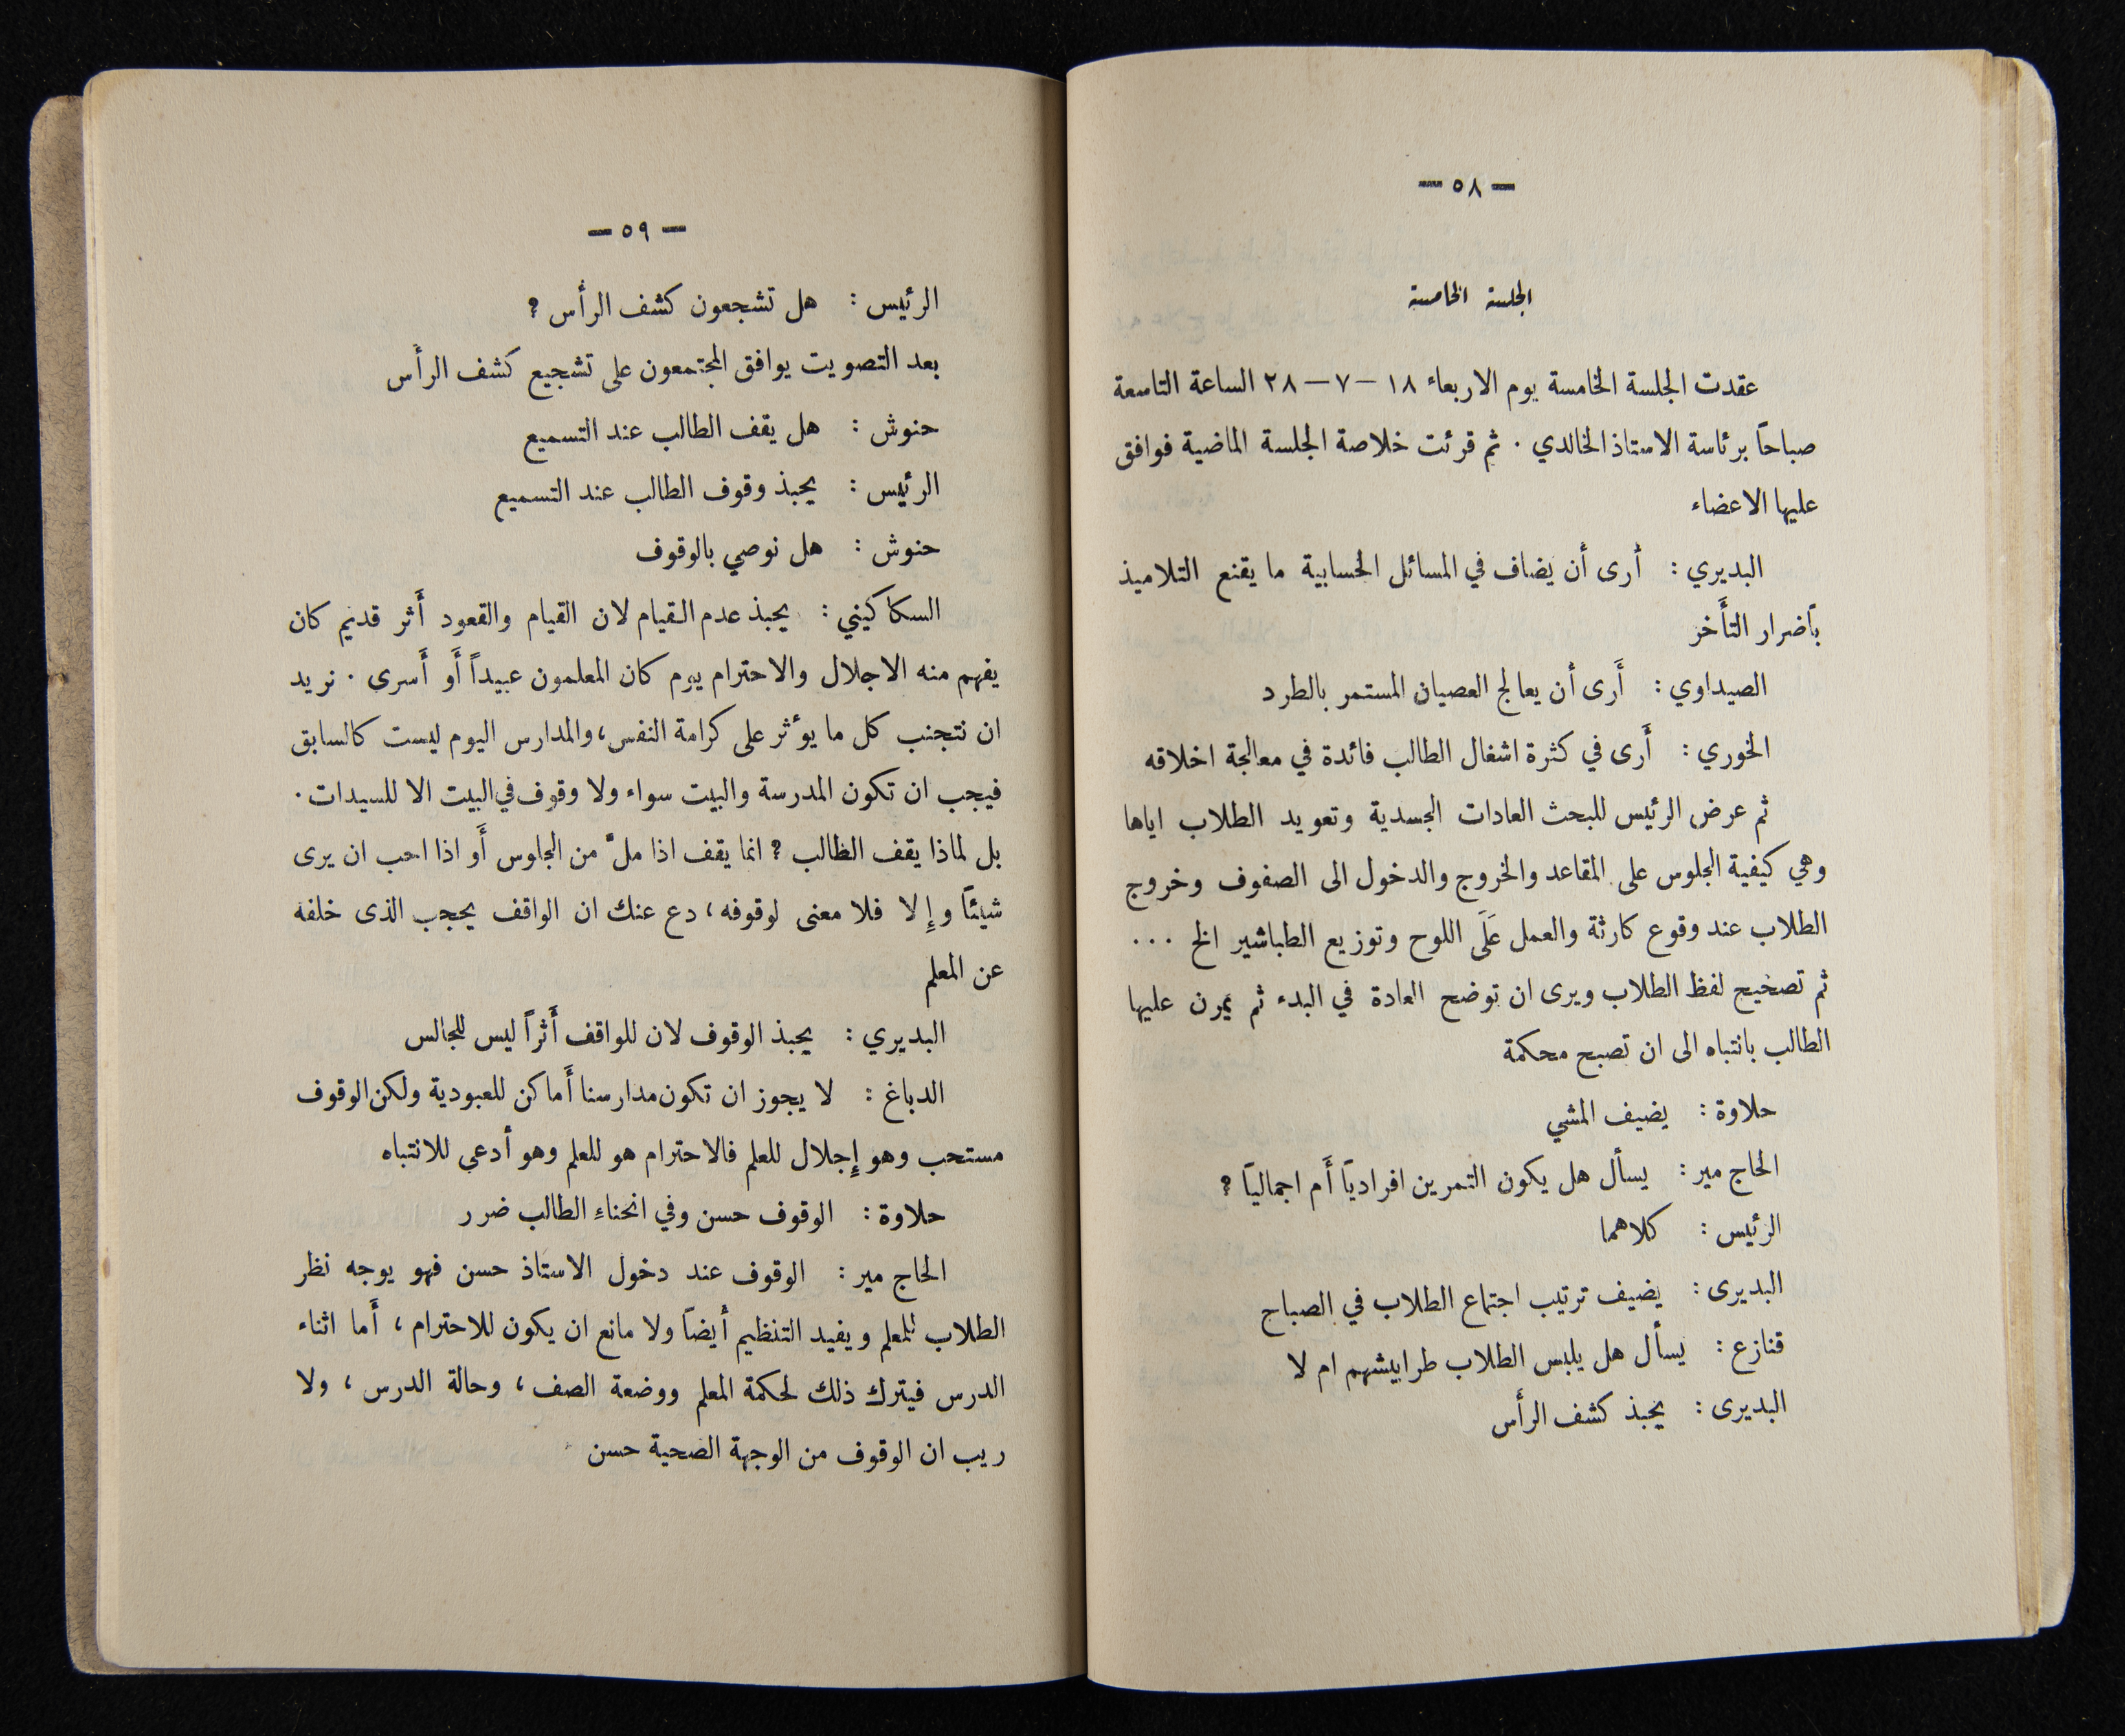 — ٥٨ —
الجلسة الخامسة
عقدت الجلسة الخامسة يوم الاربعاء ١٨ — ٧ — ٢٨ الساعة التاسعة
صباحاً برئاسة الاستاذ الخالدي . ثم قرئت خلاصة الجلسة الماضية فوافق
عليها الاعضاء
البديري : أرى أن يضاف في المسائل الحسابية ما يقنع التلاميذ
بأضرار التأَخر
الصيداوي : أَرى أن يعالج العصيان المستمر بالطرد
الخوري : أَرى في كثرة اشغال الطالب فائدة في معالجة اخلاقه
ثم عرض الرئيس للبحث العادات الجسدية وتعويد الطلاب اياها
وهي كيفية الجلوس على المقاعد والخروج والدخول الى الصفوف وخروج
الطلاب عند وقوع كارثة والعمل عَلَى اللوح وتوزيع الطباشير الخ ...
ثم تصحيح لفظ الطلاب ويرى ان توضح العادة في البدء ثم يمرن عليها
الطالب بانتباه الى ان تصبح محكمة
حلاوة : يضيف المشي
الحاج مير : يسأل هل يكون التمرين افرادياً أَم اجمالياً ؟
الرئيس : كلاهما
البديرى : يضيف ترتيب اجتماع الطلاب في الصباح
قنازع : يسأل هل يلبس الطلاب طرابيشهم ام لا
البديرى : يحبذ كشف الرأَس
— ٥٩ —
الرئيس : هل تشجعون كشف الرأس ؟
بعد التصويت يوافق المجتمعون على تشجيع كشف الرأَس
حنوش : هل يقف الطالب عند التسميع
الرئيس : يحبذ وقوف الطالب عند التسميع
حنوش : هل نوصي بالوقوف
السكاكيني : يحبذ عدم القيام لان القيام والقعود أَثر قديم كان
يفهم منه الاجلال والاحترام يوم كان المعلمون عبيداً أَو أَسرى . نريد
ان نتجنب كل ما يؤثر على كرامة النفس ، والمدارس اليوم ليست كالسابق
فيجب ان تكون المدرسة والبيت سواء ولا وقوف في البيت الا للسيدات .
بل لماذا يقف الطالب ؟ انما يقف اذا ملَّ من الجلوس أَو اذا احب ان يرى
شيئاً وإِلا فلا معنى لوقوفه ، دع عنك ان الواقف يحجب الذى خلفه
عن المعلم
البديري : يحبذ الوقوف لان للواقف أَثراً ليس للجالس
الدباغ : لا يجوز ان تكون مدارسنا أَماكن للعبودية ولكن الوقوف
مستحب وهو إِجلال للعلم فالاحترام هو للعلم وهو أدعى للانتباه
حلاوة : الوقوف حسن وفي انحناءِ الطالب ضرر
الحاج مير : الوقوف عند دخول الاستاذ حسن فهو يوجه نظر
الطلاب للمعلم ويفيد التنظيم أيضاً ولا مانع ان يكون للاحترام ، أَما اثناء
الدرس فيترك ذلك لحكمة المعلم ووضعة الصف ، وحالة الدرس ، ولا
ريب ان الوقوف من الوجهة الصحية حسن